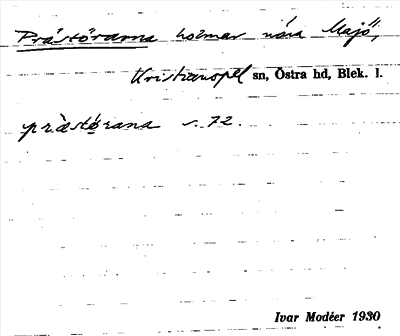 Prästörarna holmar nära Majö,
Kristianopel sn, Östra hd, Blek. l.
präst<u>ö</u>rana s. 72.
Ivar Modéer 1930